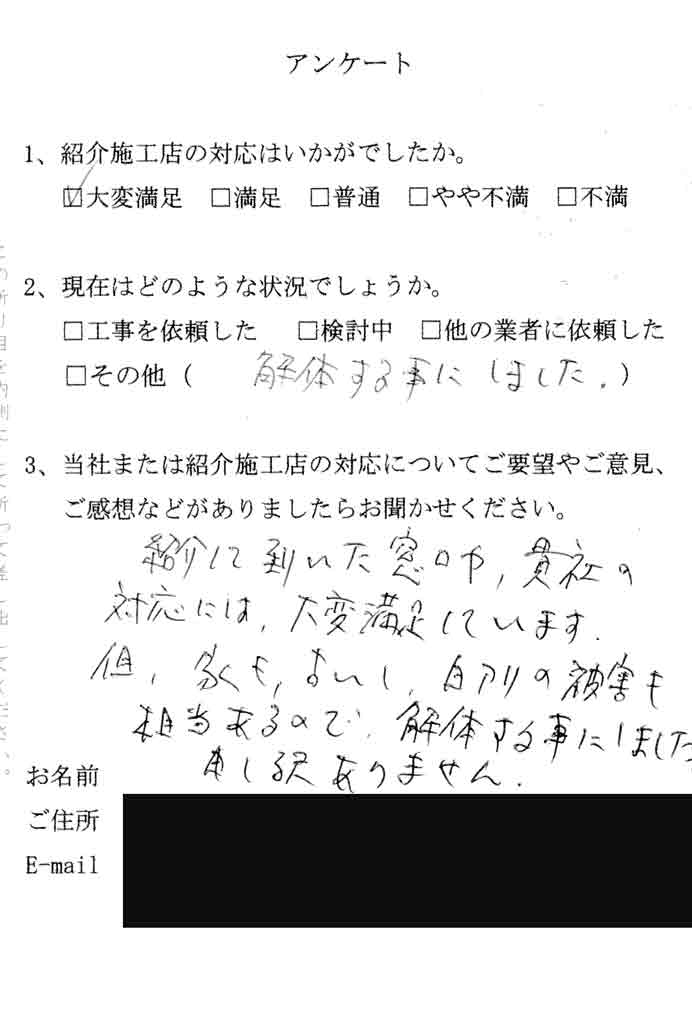 アンケート
1、紹介施工店の対応はいかがでしたか。
☑大変満足 □満足 □普通 □やや不満 □不満
2、現在はどのような状況でしょうか。
□工事を依頼した □検討中 □他の業者に依頼した
□その他（ 解体する事にしました。）
3、当社または紹介施工店の対応についてご要望やご意見、
ご感想などがありましたらお聞かせください。
紹介して頂いた窓口や、貴社の
対応には、大変満足しています。
但、家も、古いし、白アリの被害も
相当あるので、解体する事にしました
申し訳ありません。
お名前
ご住所
E-mail
この折り目を内側にして折って差し出してください。